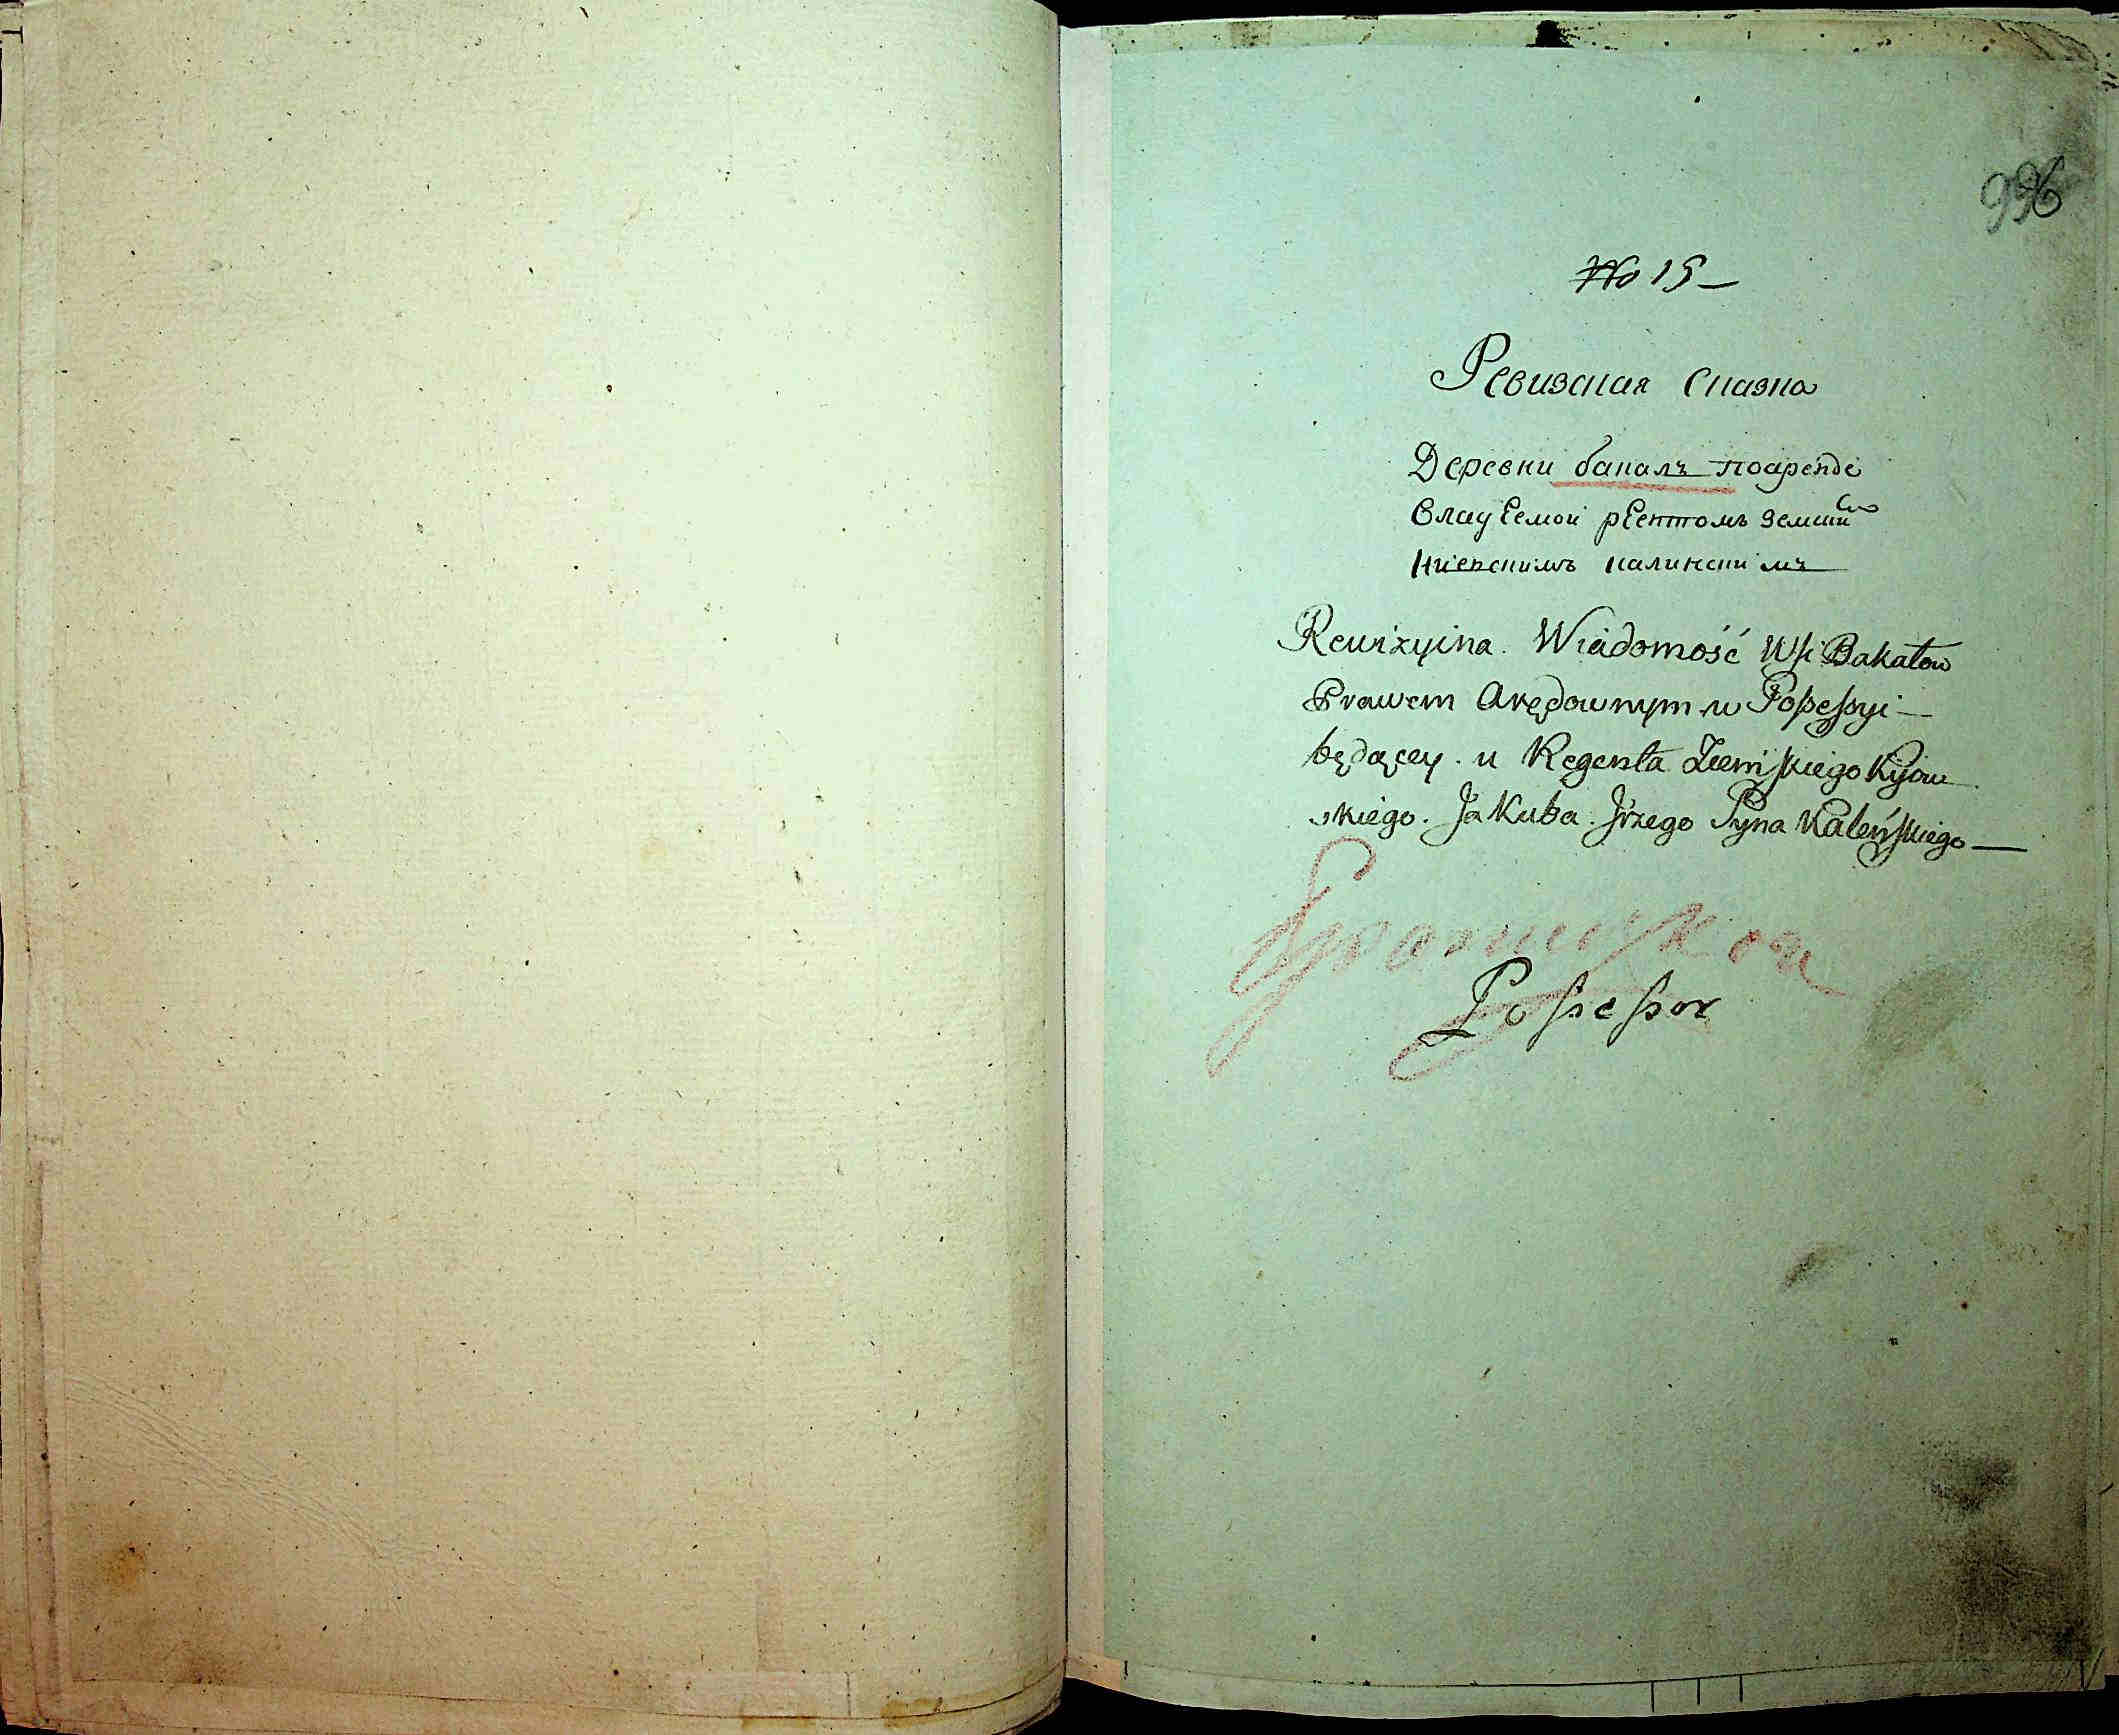 996
No 15 —
Ревизская сказка
Деревни бакалъ поаренде
Киевскимъ калинскимъ
Rewizyina. Wiadomość Wsi Bakałow
Prawem Arędownym w Possessyi —
będącey. u Regenta Ziemskiego Kijow
skiego. Jakuba. Syna Kaleńskiego —
Possessor